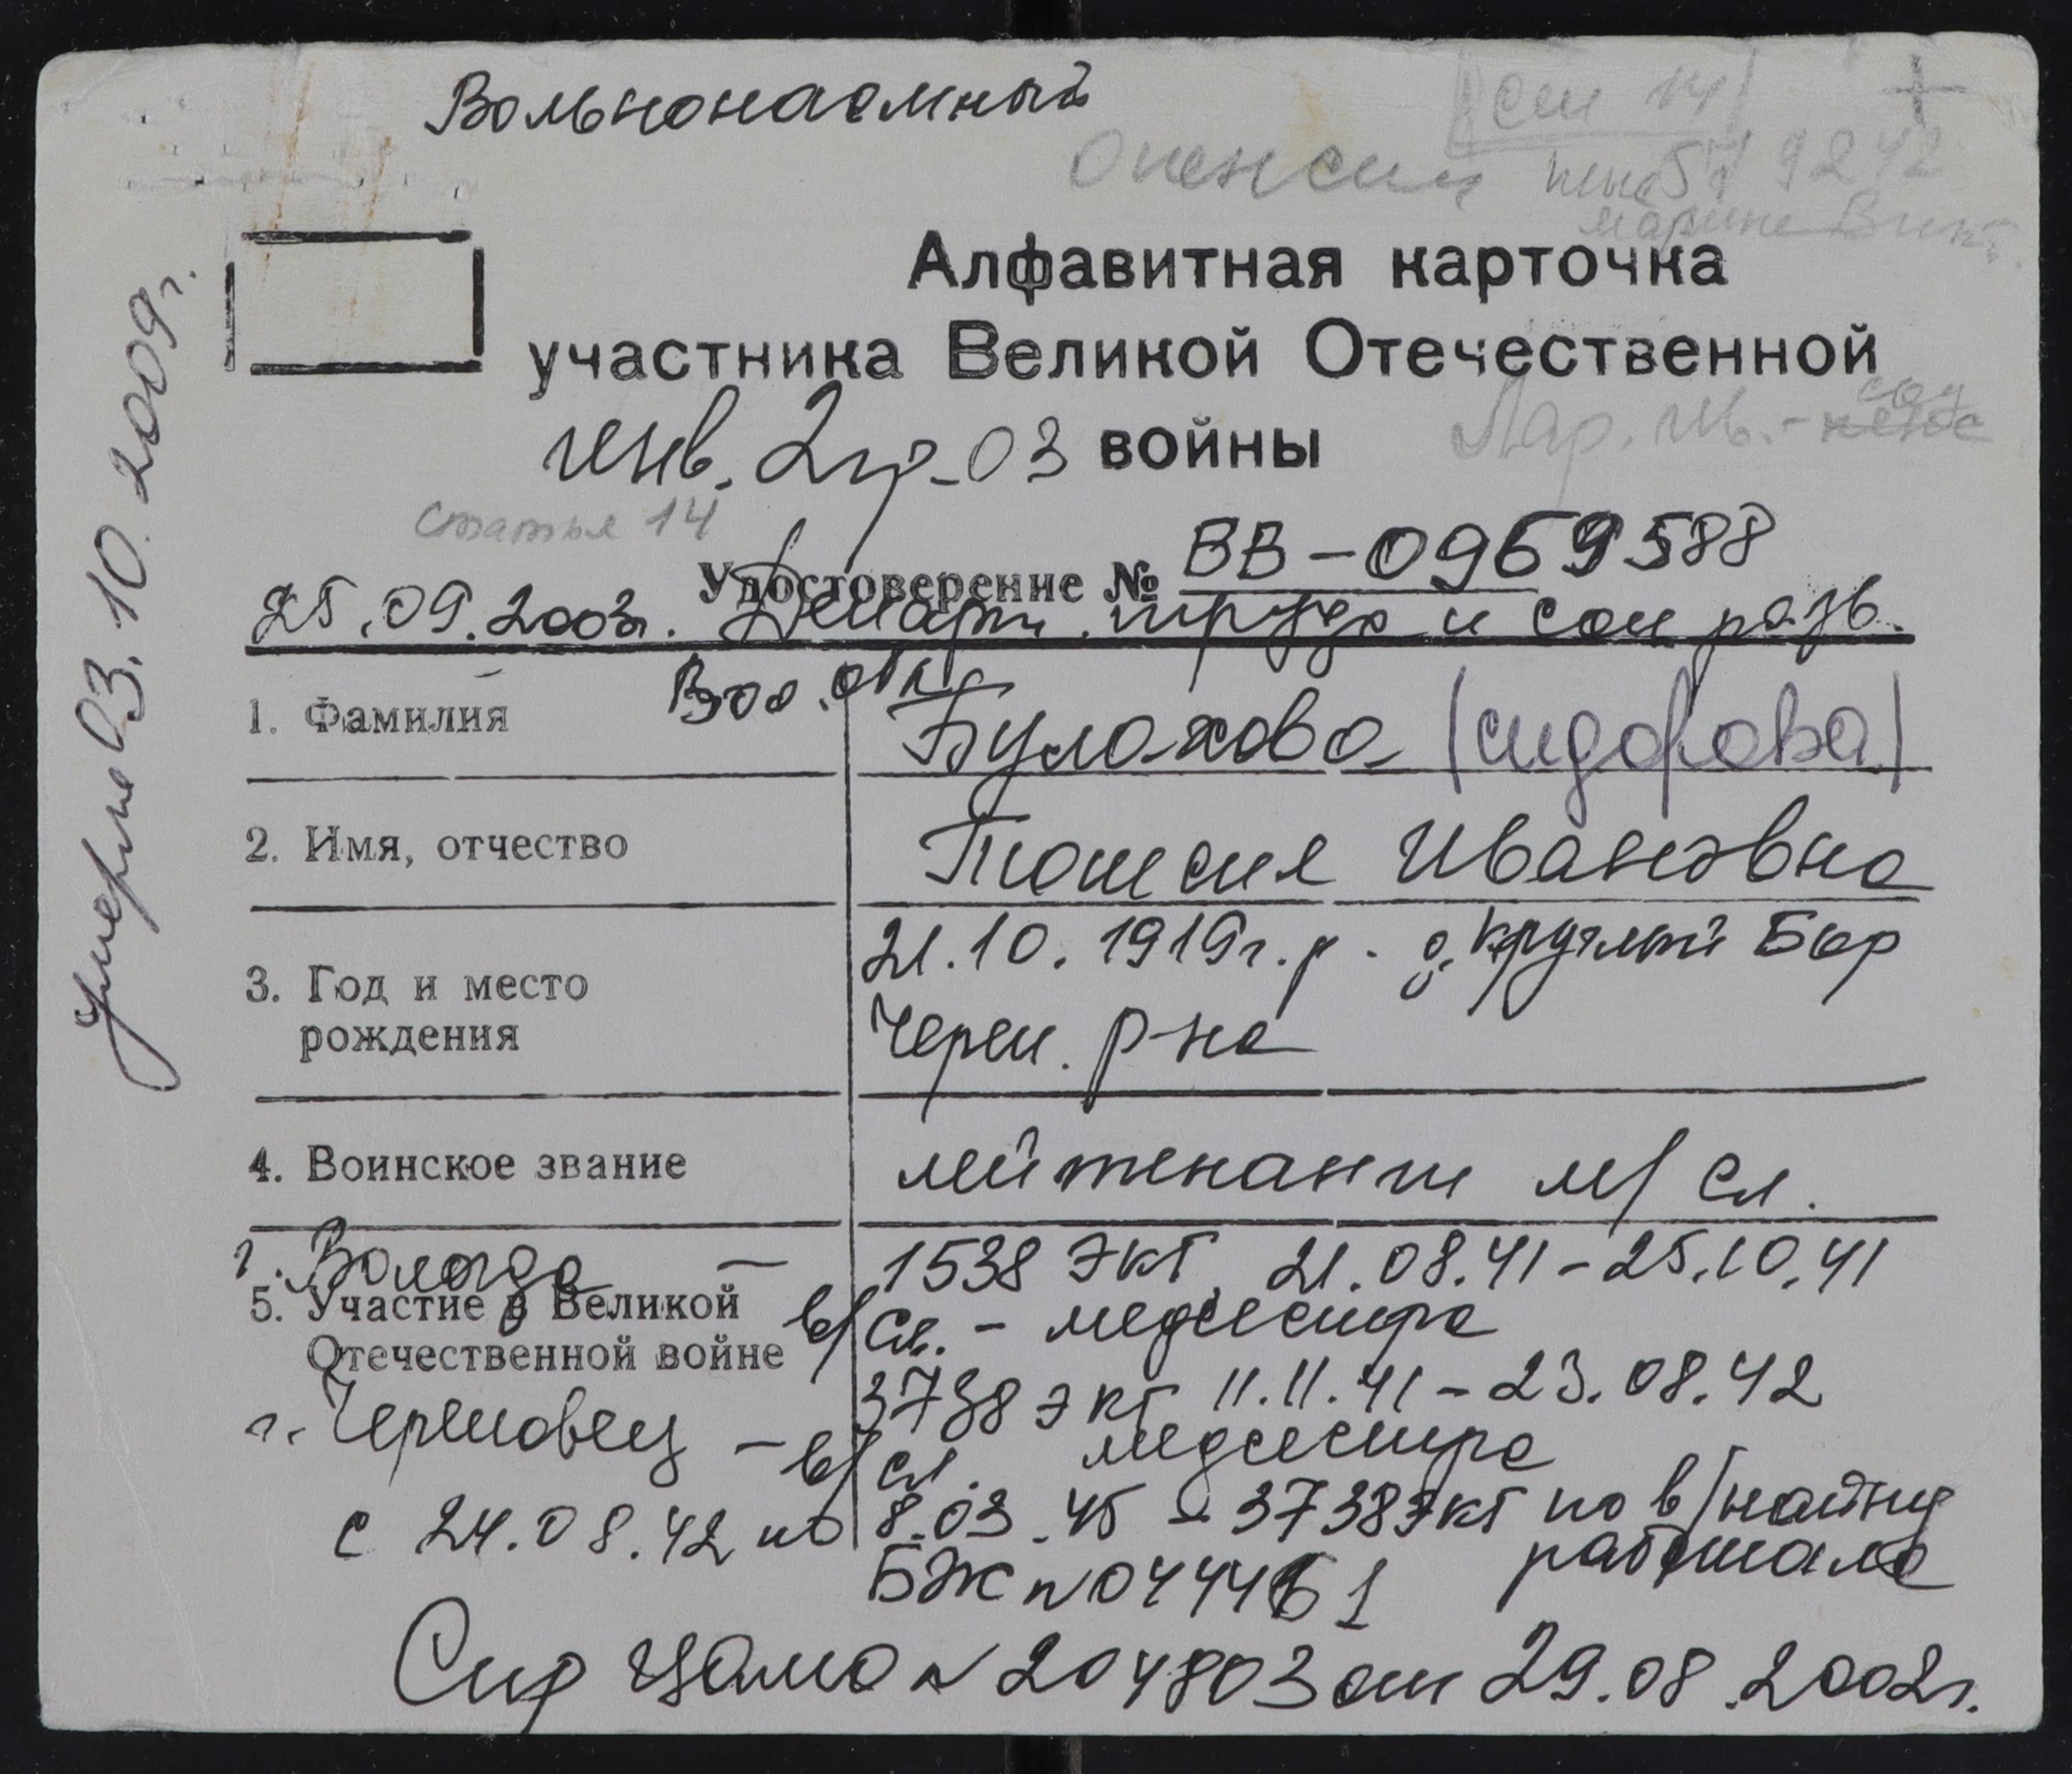 Вольнонаемный
ст 14
Опенсии
579242
Марине Викт.
Алфавитная карточка
участника Великой Отечественной
войны
инв. 2гр-03
статья 14
Удостоверение № ВВ-0969588
25.09.2003г. Департ. труда и соц разв.
Вол. обл
1. Фамилия Булахова (Сидорова)
2. Имя, отчество Таисия Ивановна
3. Год и место рождения
21.10.1919г.р. д. Круглый Бор
Череп. р-на
4. Воинское звание лейтенант м/сл.
г. Вологда — 1538 ЭКГ, 21.08.41-25.10.41
5. Участие в Великой
Отечественной войне
в/сл. - медсестра
г. Череповец — 3738 ЭКГ 11.11.41-23.08.42
в/сл. медсестра
с 24.08.42 по 8.03.45 в 3738ЭКГ по в/найму
работала
БЖ № 044461
Спр ЦАМО № 204803 от 29.08.2002г.
Умерла 03.10.2009г.